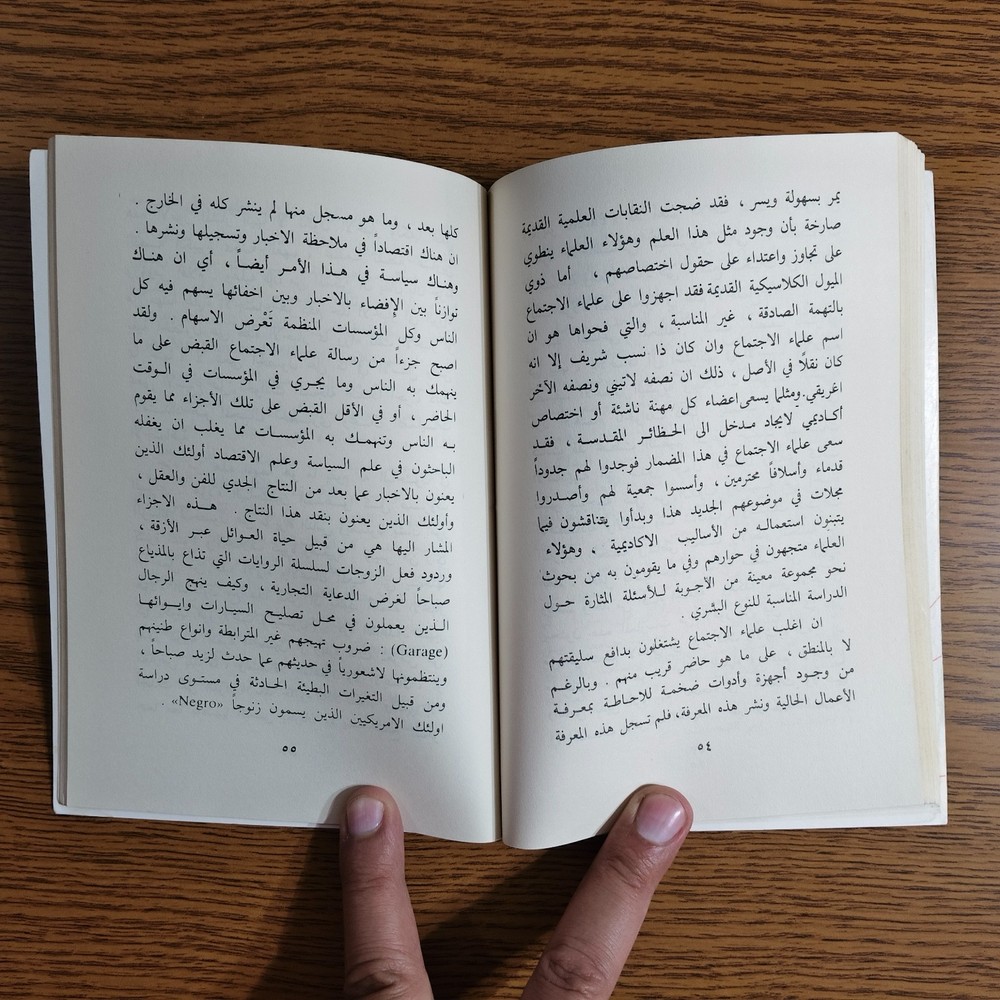 يمر بسهولة ويسر ، فقد ضجت النقابات العلمية القديمة
صارخة بأن وجود مثل هذا العلم وهؤلاء العلماء ينطوي
على تجاوز واعتداء على حقول اختصاصهم ، أما ذوي
الميول الكلاسيكية القديمة فقد اجهزوا على علماء الاجتماع
بالتهمة الصادقة ، غير المناسبة ، والتي فحواها هو ان
اسم علماء الاجتماع وان كان ذا نسب شريف إلا انه
كان نقلاً في الأصل ، ذلك ان نصفه لاتيني ونصفه الآخر
اغريقي.ومثلما يسعى اعضاء كل مهنة ناشئة أو اختصاص
أكاديمي لايجاد مدخل الى الحظائر المقدسة ، فقد
سعى علماء الاجتماع في هذا المضمار فوجدوا لهم جدوداً
قدماء وأسلافاً محترمين ، وأسسوا جمعية لهم وأصدروا
مجلات في موضوعهم الجديد هذا وبدأوا يتناقشون فيما
يتبنون استعماله من الأساليب الاكاديمية ، وهؤلاء
العلماء متجهون في حوارهم وفي ما يقومون به من بحوث
نحو مجموعة معينة من الأجوبة للأسئلة المثارة حول
الدراسة المناسبة للنوع البشري .
ان اغلب علماء الاجتماع يشتغلون بدافع سليقتهم
لا بالمنطق ، على ما هو حاضر قريب منهم . وبالرغم
من وجود أجهزة وأدوات ضخمة للاحاطة بمعرفة
الأعمال الحالية ونشر هذه المعرفة، فلم تسجل هذه المعرفة
٥٤
كلها بعد ، وما هو مسجل منها لم ينشر كله في الخارج .
ان هناك اقتصاداً في ملاحظة الاخبار وتسجيلها ونشرها .
وهناك سياسة في هذا الأمر أيضاً ، أي ان هناك
توازناً بين الإفضاء بالاخبار وبين اخفائها يسهم فيه كل
الناس وكل المؤسسات المنظمة تَعْرض الاسهام . ولقد
اصبح جزءاً من رسالة علماء الاجتماع القبض على ما
ينهمك به الناس وما يجري في المؤسسات في الوقت
الحاضر ، أو في الأقل القبض على تلك الأجزاء مما يقوم
به الناس وتنهمك به المؤسسات مما يغلب ان يغفله
الباحثون في علم السياسة وعلم الاقتصاد أولئك الذين
يعنون بالاخبار عما بعد من النتاج الجدي للفن والعقل ،
وأولئك الذين يعنون بنقد هذا النتاج . هذه الاجزاء
المشار اليها هي من قبيل حياة العوائل عبر الأزقة ،
وردود فعل الزوجات لسلسلة الروايات التي تذاع بالمذياع
صباحاً لغرض الدعاية التجارية ، وكيف ينهج الرجال
الذين يعملون في محل تصليح السيارات وايوائها
(Garage) : ضروب تهيجهم غير المترابطة وانواع طنينهم
وينتظمونها لاشعورياً في حديثهم عما حدث لزيد صباحاً ،
ومن قبيل التغيرات البطيئة الحادثة في مستوى دراسة
اولئك الامريكيين الذين يسمون زنوجاً «Negro» .
٥٥